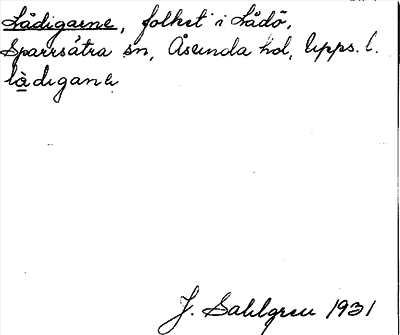 Lådigarne, folket i Lådö,
Sparrsåtra sn, Åsunda hd, Upps. l.
làdigana
J. Sahlgren 1931